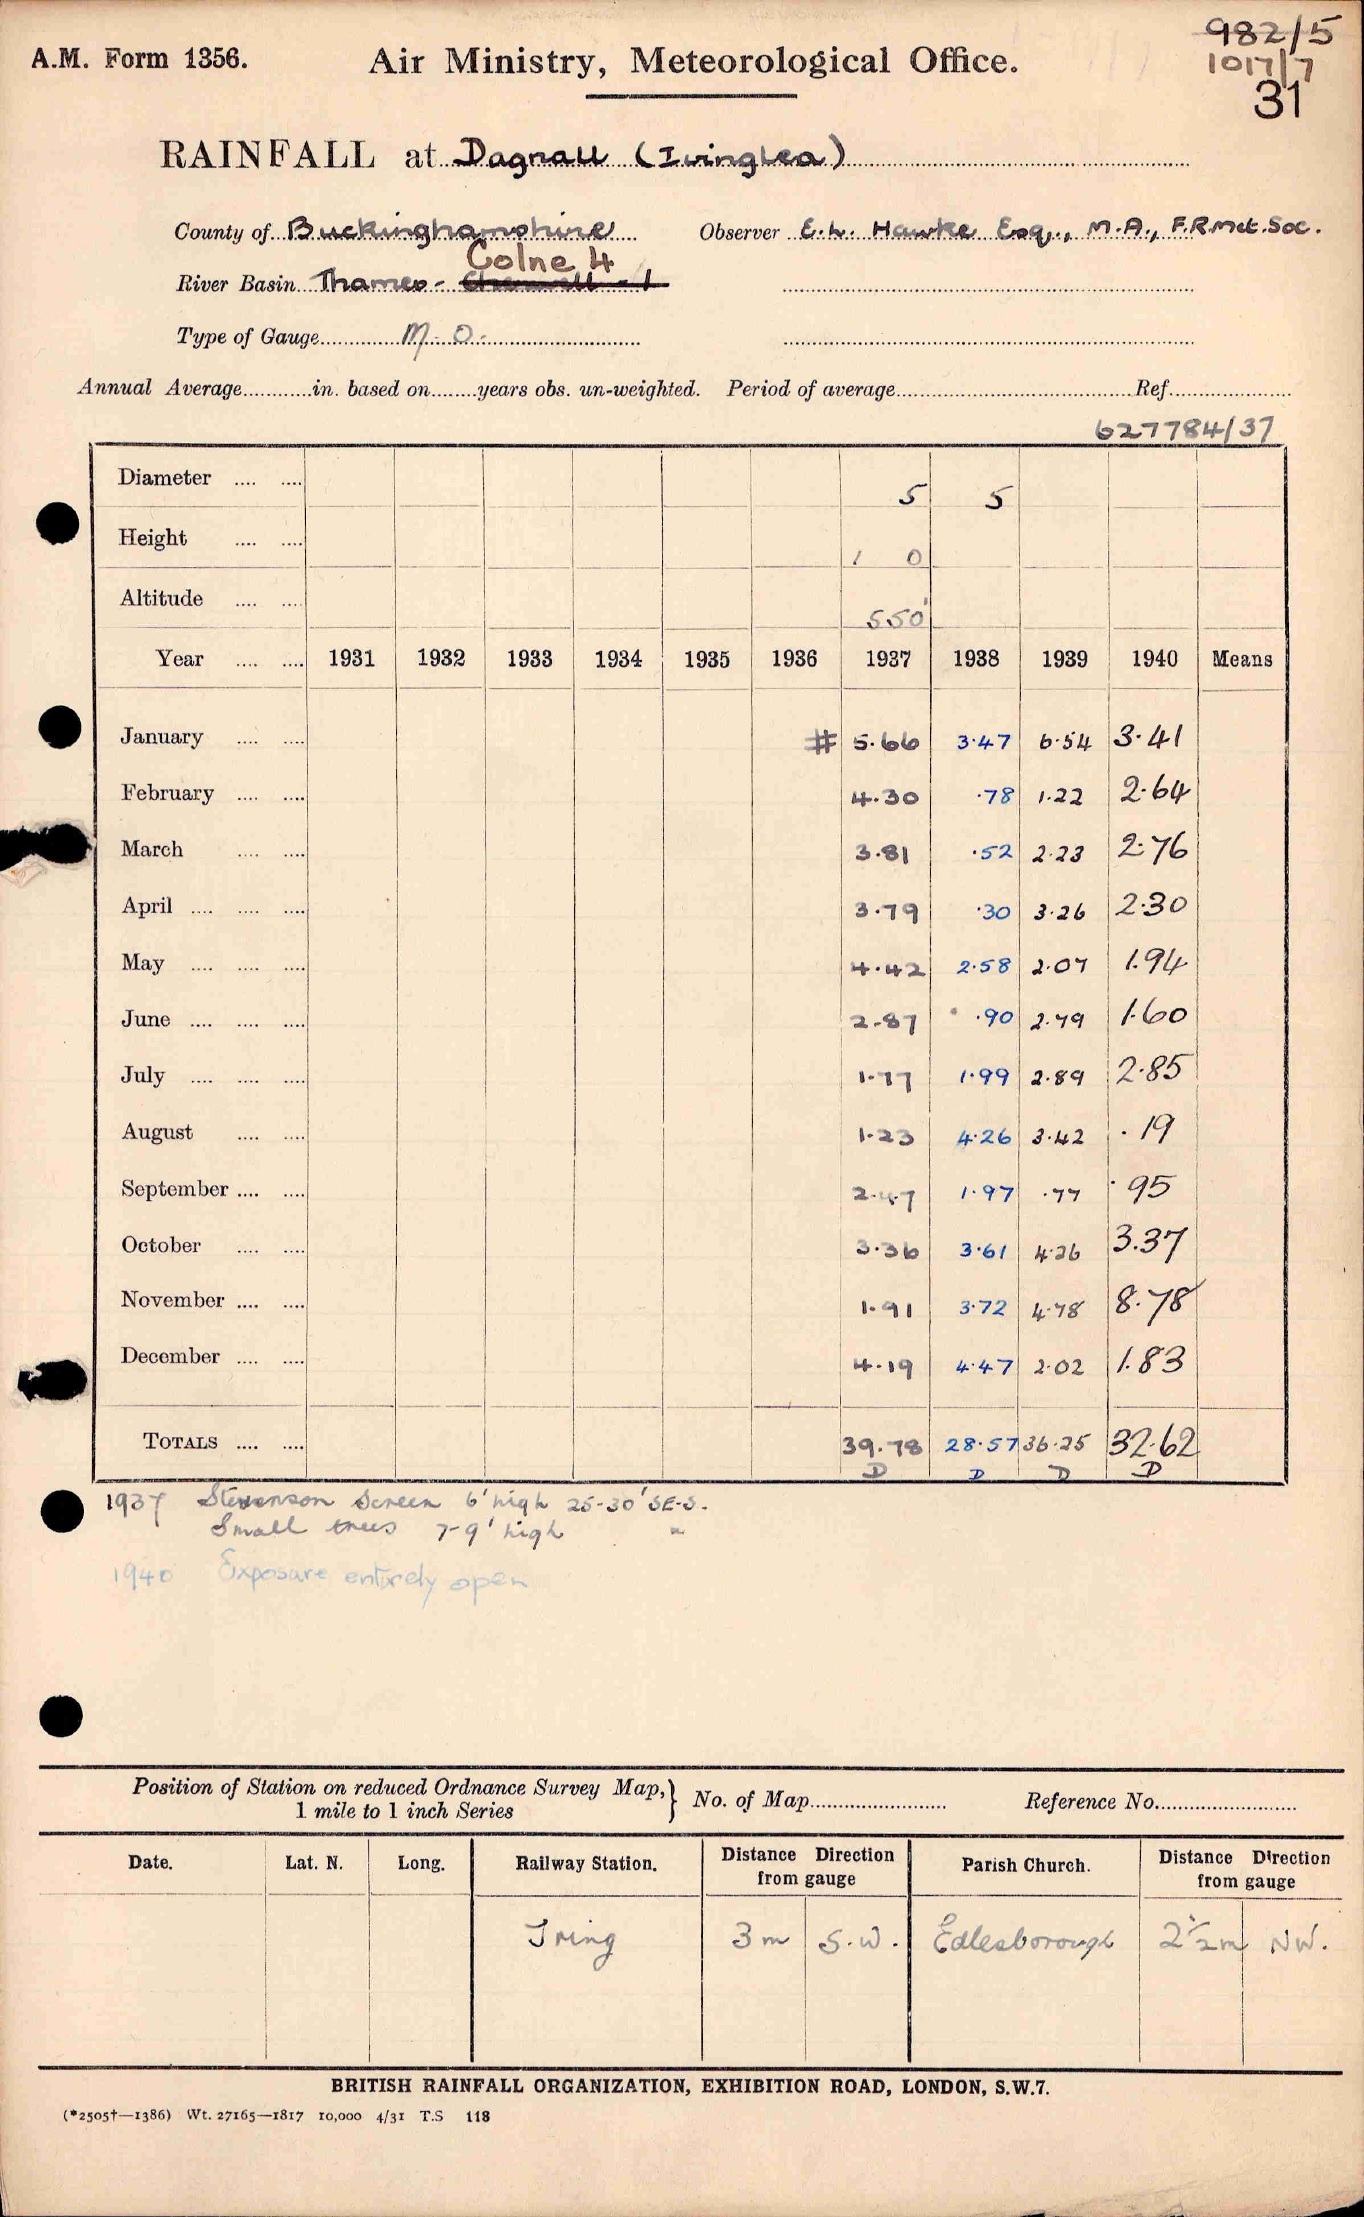 982/5
A.M. Form 1356. Air Ministry, Meteorological Office. 1017/7
31
RAINFALL at Dagnall (Ivinglea)
County of Buckinghamshire Observer E.L. Hawke Esq., M.A., F.R.Met.Soc.
Colne 4
River Basin Thames - Cherwell - 1
Type of Gauge M.O.
Annual Average in. based on years obs. un-weighted. Period of average Ref
627784/37
Diameter .... .... 5 5
Height .... .... 1 0
Altitude .... .... 550'
Year .... .... 1931 1932 1933 1934 1935 1936 1937 1938 1939 1940 Means
January .... .... # 5.66 3.47 6.54 3.41
February .... .... 4.30 .78 1.22 2.64
March .... .... 3.81 .52 2.23 2.76
April .... .... .... 3.79 .30 3.26 2.30
May .... .... .... 4.42 2.58 2.07 1.94
June .... .... .... 2.87 .90 2.79 1.60
July .... .... .... 1.77 1.99 2.89 2.85
August .... .... 1.23 4.26 3.42 .19
September .... .... 2.47 1.97 .77 .95
October .... .... 3.36 3.61 4.26 3.37
November .... .... 1.91 3.72 4.78 8.78
December .... .... 4.19 4.47 2.02 1.83
TOTALS .... .... 39.78 28.57 36.25 32.62
D D D D
1937 Stevenson Screen 6' high 25-30' SE-S.
Small trees 7-9' high "
1940 Exposure entirely open
Position of Station on reduced Ordnance Survey Map, } No. of Map Reference No.
1 mile to 1 inch Series
Date. Lat. N. Long. Railway Station. Distance Direction from gauge Parish Church. Distance Direction from gauge
Tring 3m S.W. Edlesborough 2½m NW.
BRITISH RAINFALL ORGANIZATION, EXHIBITION ROAD, LONDON, S.W.7.
(*2505†—1386) Wt. 27165—1817 10,000 4/31 T.S 118